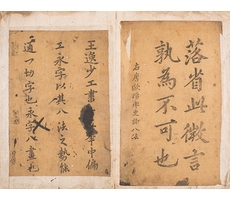 落省此微言
孰為不可也
八法
王逸少工書年中偏
工永字以其八法之勢能
通一切字也永字八畫